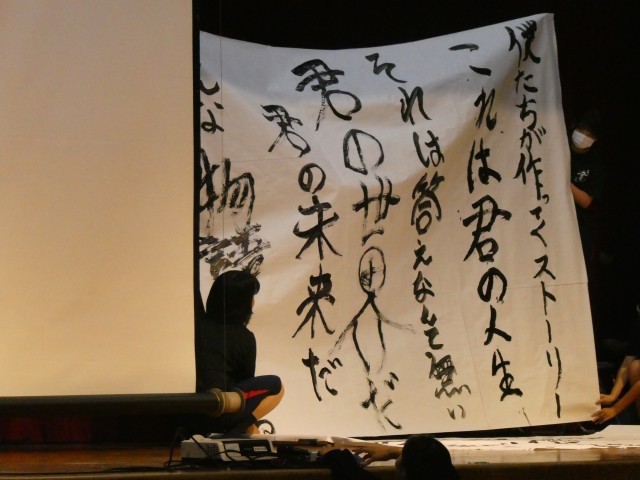 僕たちが作ってくストーリー
これは君の人生
それは答えなんて無い
君の世界だ
君の未来だ
んな物語